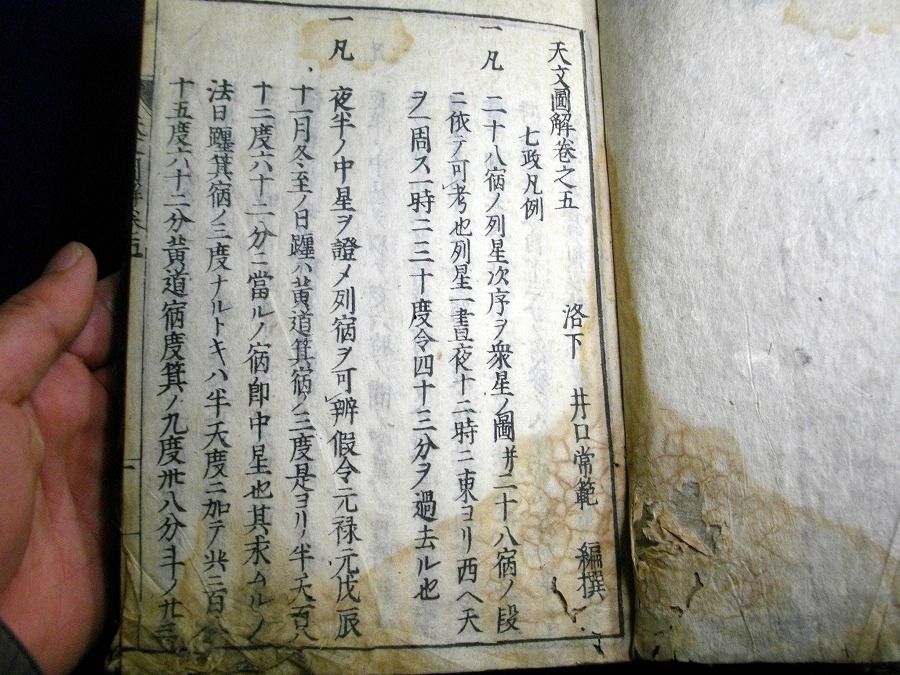 天文圖解卷之五
洛下 井口常範 編撰
七政凡例
一凡 二十八宿ノ列星次序ヲ衆星ノ圖并二十八宿ノ段
ニ依テ可考也列星一晝夜十二時ニ東ヨリ西ヘ天
ヲ一周ス一時ニ三十度令四十三分ヲ過去ル也
一凡 夜半ノ中星ヲ證メ列宿ヲ可辨假令元禄元戊辰
十一月冬至ノ日躔ハ黄道箕宿ノ三度是ヨリ半天百八
十二度六十二分ニ當ルノ宿即中星也其求ムルノ
法日躔箕宿ノ三度ナルトキハ半天度ニ加テ共三百八
十五度六十二分黄道宿度箕ノ九度卅八分斗ノ廿三